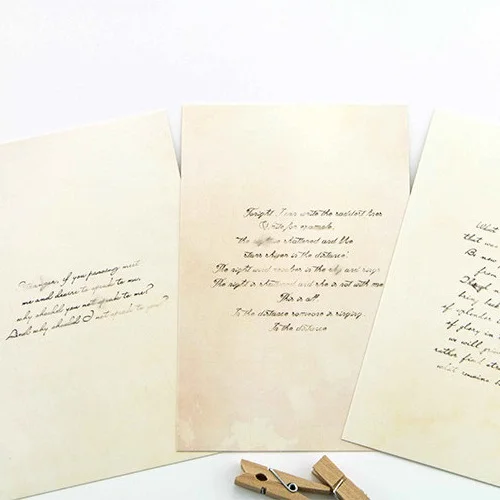 Stranger, if you passing meet
me and desire to speak to me,
why should you not speak to me?
And why should I not speak to you?
Tonight I can write the saddest lines
Write for example,
the night is shattered and the
stars shiver in the distance.
The night wind revolves in the sky and sings
The night is shattered and she is not with me
This is all
In the distance someone is singing.
In the distance
What
that was
Be now
from
Though
bring back
of splendor
of glory in
we will grieve
rather find str
what remains